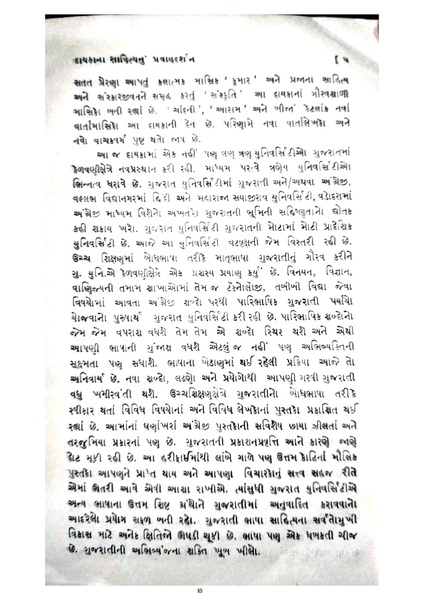 દાયકાના સાહિત્યનું પ્રવાહદર્શન [ ૫
સતત પ્રેરણા આપતું કલાત્મક માસિક ‘કુમાર’ અને પ્રજાના સાહિત્ય
અને સંસ્કારજીવનને સમૃદ્ધ કરતું ‘સંસ્કૃતિ’ આ દાયકાનાં ગૌરવશાળી
માસિકો બની રહ્યાં છે. ‘ચાંદની’, ‘આરામ’ અને બીજાં કેટલાંક નવાં
વાર્તામાસિકો આ દાયકાની દેન છે. પરિણામે નવા વાર્તાલેખકો અને
નવો વાચકવર્ગ પુષ્ટ થતો જાય છે.
આ જ દાયકામાં એક નહીં પણ ત્રણ ત્રણ યુનિવર્સિટીઓ ગુજરાતમાં
કેળવણીક્ષેત્રે નવપ્રસ્થાન કરી રહી. માધ્યમ પરત્વે ત્રણેય યુનિવર્સિટીઓ
ભિન્નત્વ ધરાવે છે. ગુજરાત યુનિવર્સિટીમાં ગુજરાતી અને/અથવા અંગ્રેજી,
વલ્લભ વિદ્યાનગરમાં હિંદી અને મહારાજા સયાજીરાવ યુનિવર્સિટી, વડોદરામાં
અંગ્રેજી માધ્યમ વિશેનો અખતરો ગુજરાતની ભૂમિની સહિષ્ણુતાનો દ્યોતક
કહી શકાય ખરો. ગુજરાત યુનિવર્સિટી ગુજરાતની મોટામાં મોટી પ્રાદેશિક
યુનિવર્સિટી છે. આજે આ યુનિવર્સિટી વટવૃક્ષની જેમ વિસ્તરી રહી છે.
ઉચ્ચ શિક્ષણમાં બોધભાષા તરીકે માતૃભાષા ગુજરાતીનું ગૌરવ કરીને
ગુ. યુનિ.એ કેળવણીક્ષેત્રે એક પ્રશસ્ય પ્રયાણ કર્યું છે. વિનયન, વિજ્ઞાન,
વાણિજ્યની તમામ શાખાઓમાં તેમ જ ટેકનોલોજી, તબીબી વિદ્યા જેવા
વિષયોમાં આવતા અંગ્રેજી શબ્દો પરથી પારિભાષિક ગુજરાતી પર્યાયો
યોજવાનો પુરુષાર્થ ગુજરાત યુનિવર્સિટી કરી રહી છે. પારિભાષિક શબ્દોનો
જેમ જેમ વપરાશ વધશે તેમ તેમ એ શબ્દો સ્થિર થશે અને એથી
આપણી ભાષાની ગુંજાશ વધશે એટલું જ નહીં પણ અભિવ્યક્તિની
સૂક્ષ્મતા પણ સધાશે. ભાષાના ખેડાણમાં થઈ રહેલી પ્રક્રિયા આજે તો
અનિવાર્ય છે. નવા શબ્દો, લહેકા અને પ્રયોગોથી આપણી ગરવી ગુજરાતી
વધુ ખમીરવંતી થશે. ઉચ્ચશિક્ષણક્ષેત્રે ગુજરાતીનો બોધભાષા તરીકે
સ્વીકાર થતાં વિવિધ વિષયોનાં અને વિવિધ લેખકોનાં પુસ્તકો પ્રકાશિત થઈ
રહ્યાં છે. આમાંનાં ઘણાંખરાં અંગ્રેજી પુસ્તકોની સવિશેષ છાયા ઝીલતાં અને
તરજુમિયા પ્રકારનાં પણ છે. ગુજરાતની પ્રકાશનપ્રવૃત્તિ આને કારણે જાણે
દોટ મૂકી રહી છે. આ હરીફાઈમાંથી લાંબે ગાળે પણ ઉત્તમ કોટિનાં મૌલિક
પુસ્તકો આપણને પ્રાપ્ત થાય અને આપણા વિચારકોનું સત્ત્વ સહજ રીતે
એમાં ઊતરી આવે એવી આશા રાખીએ. ત્યાંસુધી ગુજરાત યુનિવર્સિટીએ
અન્ય ભાષાના ઉત્તમ શિષ્ટ ગ્રંથોને ગુજરાતીમાં અનુવાદિત કરાવવાનો
આદરેલો પ્રયોગ સફળ બની રહો. ગુજરાતી ભાષા સાહિત્યના સર્વતોમુખી
વિકાસ માટે અનેક ક્ષિતિજો ઊઘડી ચૂકી છે. ભાષા પણ એક ધબકતી ચીજ
છે. ગુજરાતીની અભિવ્યંજના શક્તિ ખૂબ ખીલો.